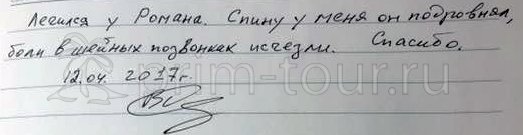 Лечился у Романа. Спину у меня он подровнял,
боли в шейных позвонках исчезли. Спасибо.
12.04. 2017г.
prim-tour.ru